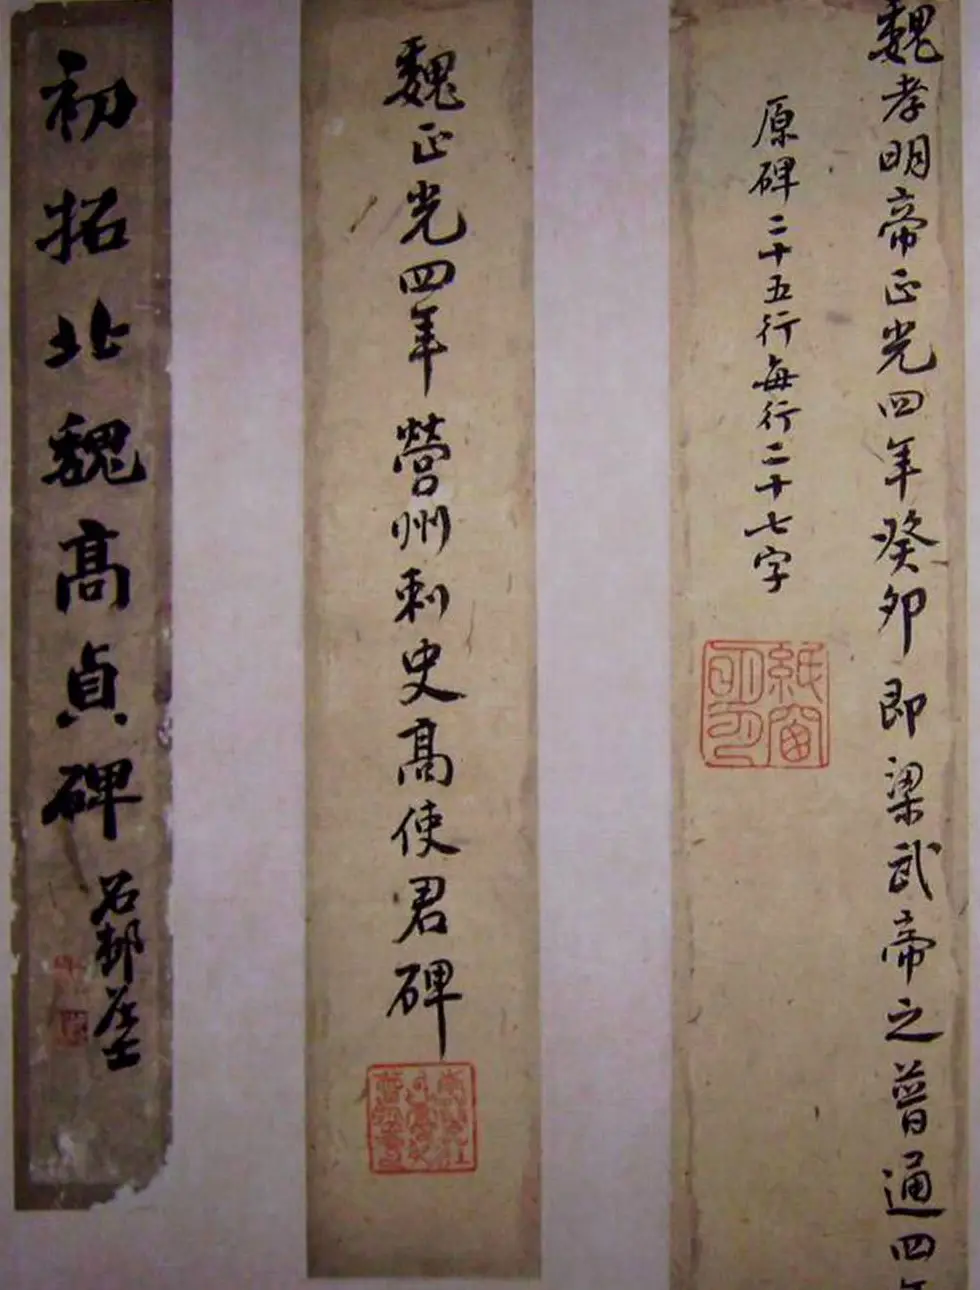 魏孝明帝正光四年癸卯即梁武帝之普通四年
原碑二十五行每行二十七字
紙窗明月
魏正光四年營州刺史高使君碑
初拓北魏高貞碑
石邨居士